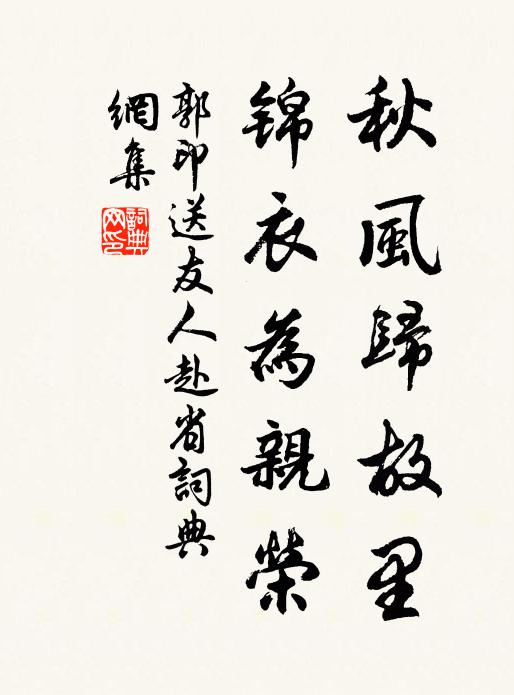 秋風歸故里
錦衣為親榮
郭印送友人赴省詞典
網集
詞典
网印